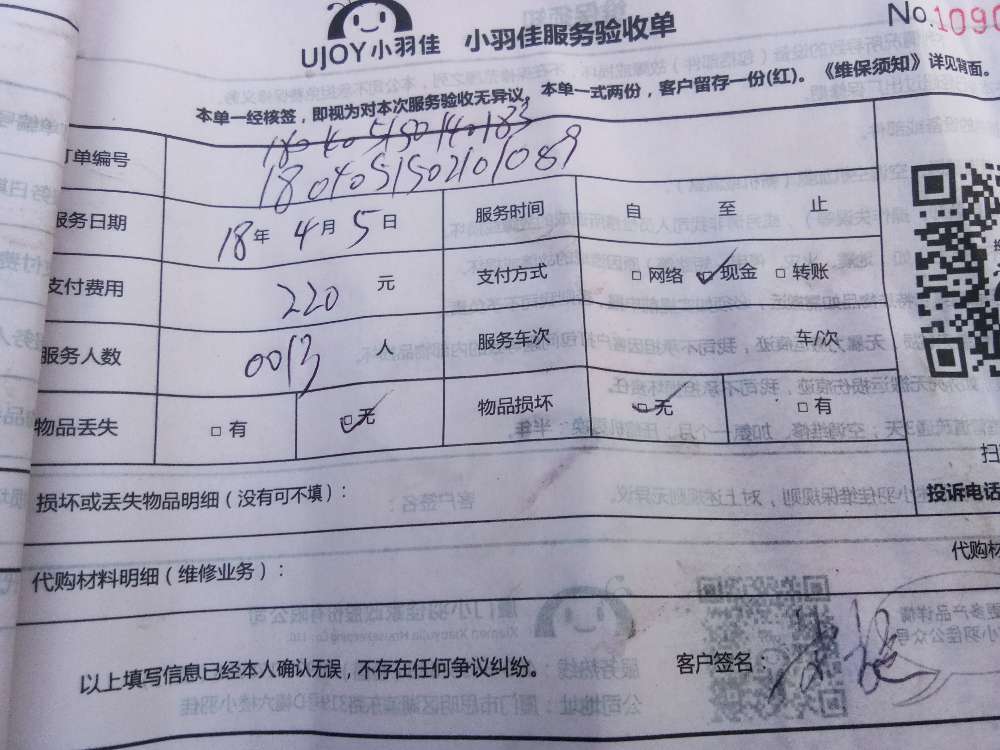 UJOY小羽佳 小羽佳服务验收单 No.1090
本单一经核签，即视为对本次服务验收无异议。本单一式两份，客户留存一份(红)。《维保须知》详见背面。
订单编号 1804051502101089
服务日期 18年 4月 5日 服务时间 自 至 止
支付费用 220 元 支付方式 □网络 □现金 □转账
服务人数 0013 人 服务车次 车/次
物品丢失 □有 □无 物品损坏 □无 □有
损坏或丢失物品明细（没有可不填）：
投诉电话
代购材料明细（维修业务）：
以上填写信息已经本人确认无误，不存在任何争议纠纷。 客户签名：